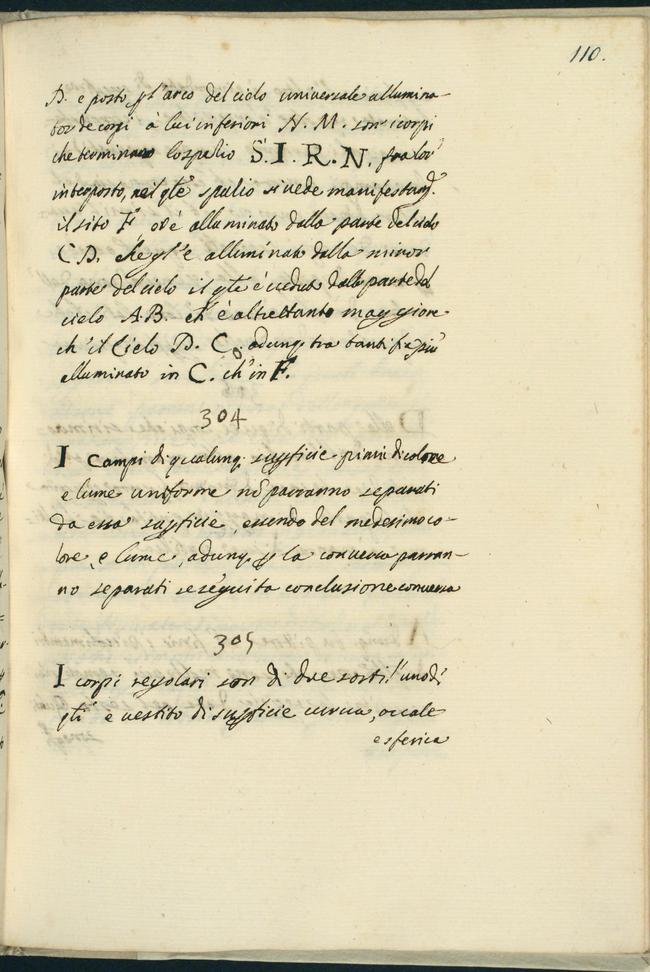 110.
D. e posto p l'arco del cielo universale allumina-
tor de corpi à lui inferiori N. M. son i corpi
che terminano lo spatio S. I. R. N. fra lor'
interposto, nel qle spatio si vede manifestamte.
il sito F ov'è alluminato dalla parte del cielo
C D. che gl'è alluminato dalla minor
parte del cielo il qle è veduto dalla parte del
cielo A.B. ch'è altrettanto maggiore
ch'il Cielo D. C. adunq. tra tanti fia più
alluminato in C. ch'in F.
304
I campi di qualunq. supficie piani di colore
e lume uniforme nõ parranno separati
da essa supficie, essendo del medesimo co-
lore, e lume, adunq. p la conversa parran-
no separati se seguita conclusione conversa
305
I corpi regolari son di due sorti l'uno di
qli è vestito di supficie curva, ovale
e sferica